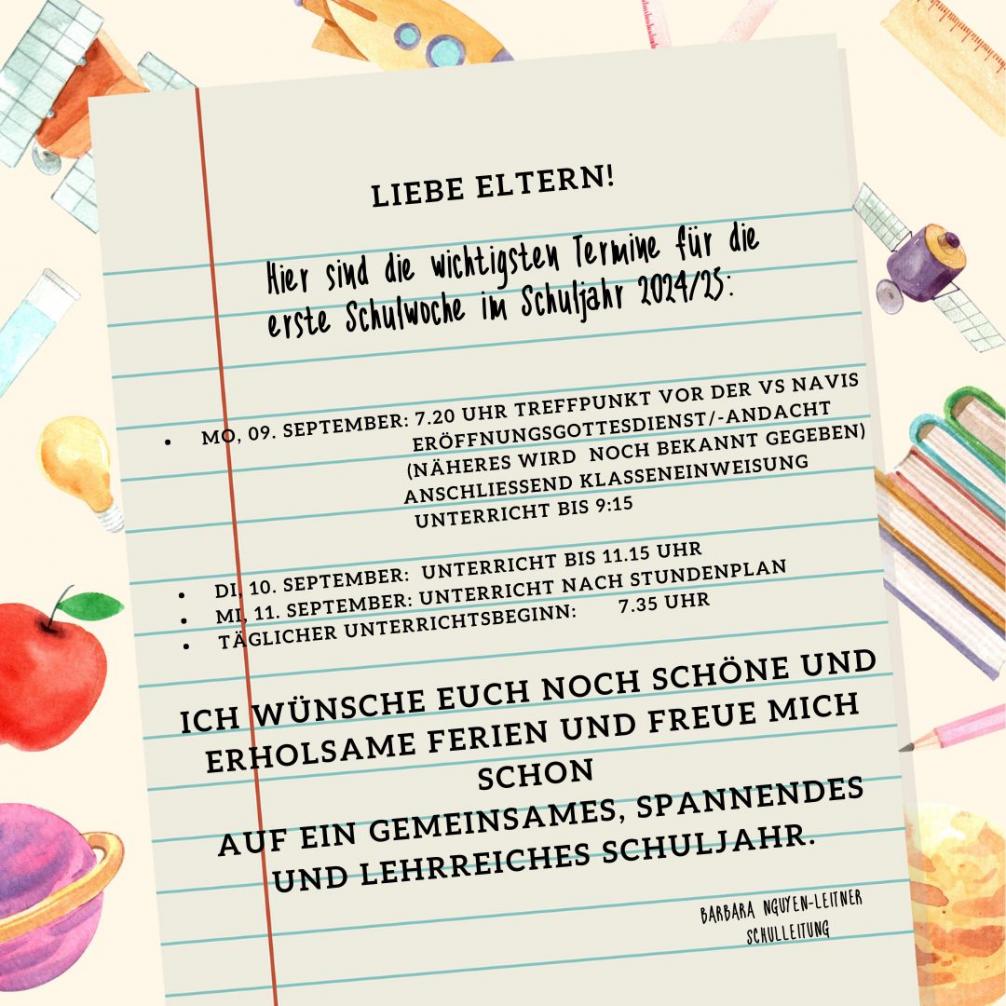 LIEBE ELTERN!
Hier sind die wichtigsten Termine für die
erste Schulwoche im Schuljahr 2024/25:
• MO, 09. SEPTEMBER: 7.20 UHR TREFFPUNKT VOR DER VS NAVIS
ERÖFFNUNGSGOTTESDIENST/-ANDACHT
(NÄHERES WIRD NOCH BEKANNT GEGEBEN)
ANSCHLIESSEND KLASSENEINWEISUNG
UNTERRICHT BIS 9:15
• DI, 10. SEPTEMBER: UNTERRICHT BIS 11.15 UHR
• MI, 11. SEPTEMBER: UNTERRICHT NACH STUNDENPLAN
• TÄGLICHER UNTERRICHTSBEGINN: 7.35 UHR
ICH WÜNSCHE EUCH NOCH SCHÖNE UND
ERHOLSAME FERIEN UND FREUE MICH
SCHON
AUF EIN GEMEINSAMES, SPANNENDES
UND LEHRREICHES SCHULJAHR.
BARBARA NGUYEN-LEITNER
SCHULLEITUNG